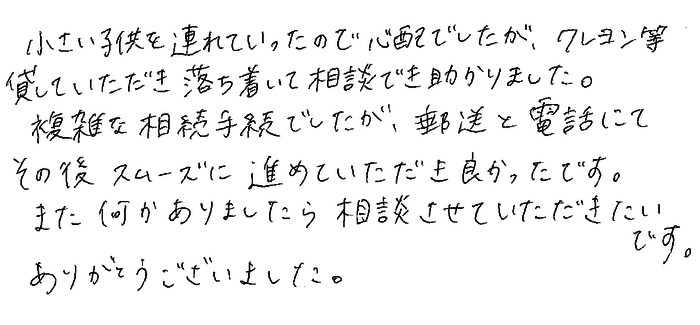 小さい子供を連れていったので心配でしたが、クレヨン等
貸していただき落ち着いて相談でき助かりました。
複雑な相続手続でしたが、郵送と電話にて
その後スムーズに進めていただき良かったです。
また何かありましたら相談させていただきたい
です。
ありがとうございました。